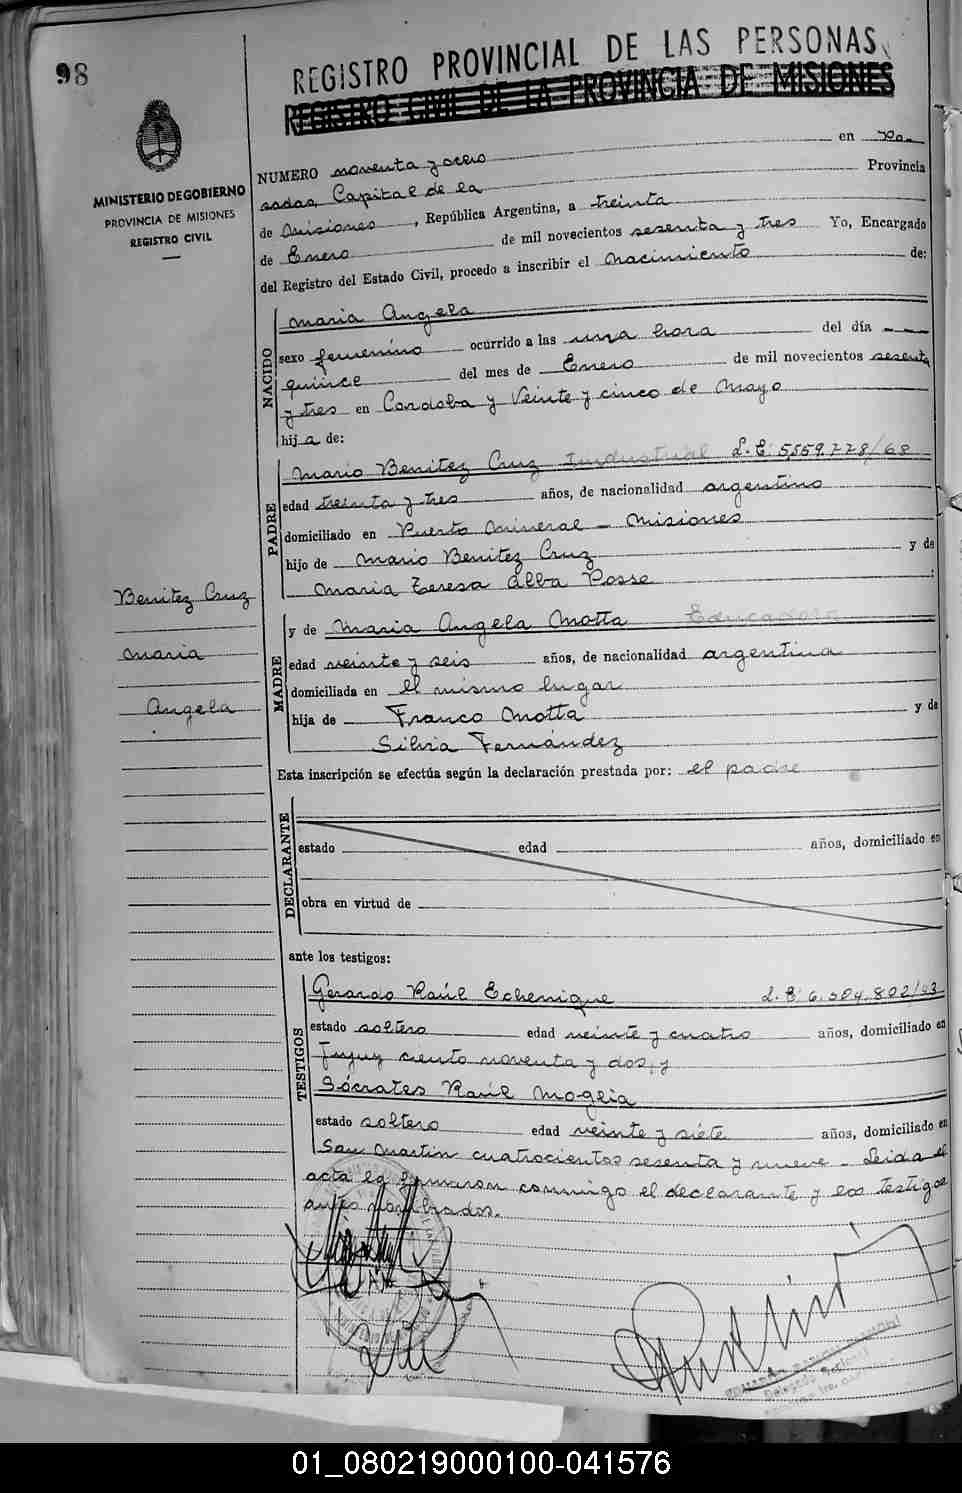 98
REGISTRO PROVINCIAL DE LAS PERSONAS
REGISTRO CIVIL DE LA PROVINCIA DE MISIONES
MINISTERIO DE GOBIERNO
PROVINCIA DE MISIONES
REGISTRO CIVIL
NUMERO noventa y ocho en Po-
sadas, Capital de la Provincia
de Misiones, República Argentina, a treinta
de Enero de mil novecientos sesenta y tres Yo, Encargado
del Registro del Estado Civil, procedo a inscribir el nacimiento de:
NACIDO
Maria Angela
sexo femenino ocurrido a las una hora del día ---
quince del mes de Enero de mil novecientos sesenta
y tres en Cordoba y Veinte y cinco de Mayo
hija de:
PADRE
Mario Benitez Cruz Industrial L.E. 5.559.778/68
edad treinta y tres años, de nacionalidad argentino
domiciliado en Puerto Mineral - Misiones
hijo de Mario Benitez Cruz y de
Maria Teresa Alba Posse :
Benitez Cruz
Maria
Angela
MADRE
y de Maria Angela Motta Educadora
edad veinte y seis años, de nacionalidad argentina
domiciliada en el mismo lugar
hija de Franco Motta y de
Silvia Fernández
Esta inscripción se efectúa según la declaración prestada por: el padre
DECLARANTE
estado edad años, domiciliado en
obra en virtud de
ante los testigos:
TESTIGOS
Gerardo Raúl Echenique L.E. 6.504.802/43
estado soltero edad veinte y cuatro años, domiciliado en
Jujuy ciento noventa y dos, y
Sócrates Raúl Moglia
estado soltero edad veinte y siete años, domiciliado en
San Martin cuatrocientos sesenta y nueve - Leida el
acta la firmaron conmigo el declarante y los testigos
antes nombrados.
01_080219000100-041576